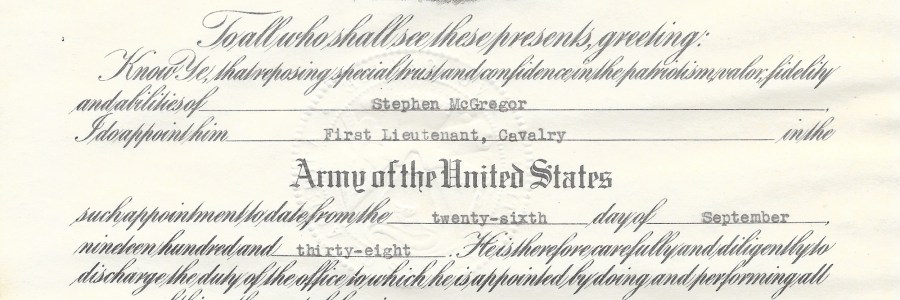 To all who shall see these presents, greeting:
Know Ye, that reposing special trust and confidence in the patriotism, valor, fidelity
and abilities of Stephen McGregor,
I do appoint him First Lieutenant, Cavalry in the
Army of the United States
such appointment to date from the twenty-sixth day of September,
nineteen hundred and thirty-eight. He is therefore carefully and diligently to
discharge the duty of the office to which he is appointed by doing and performing all